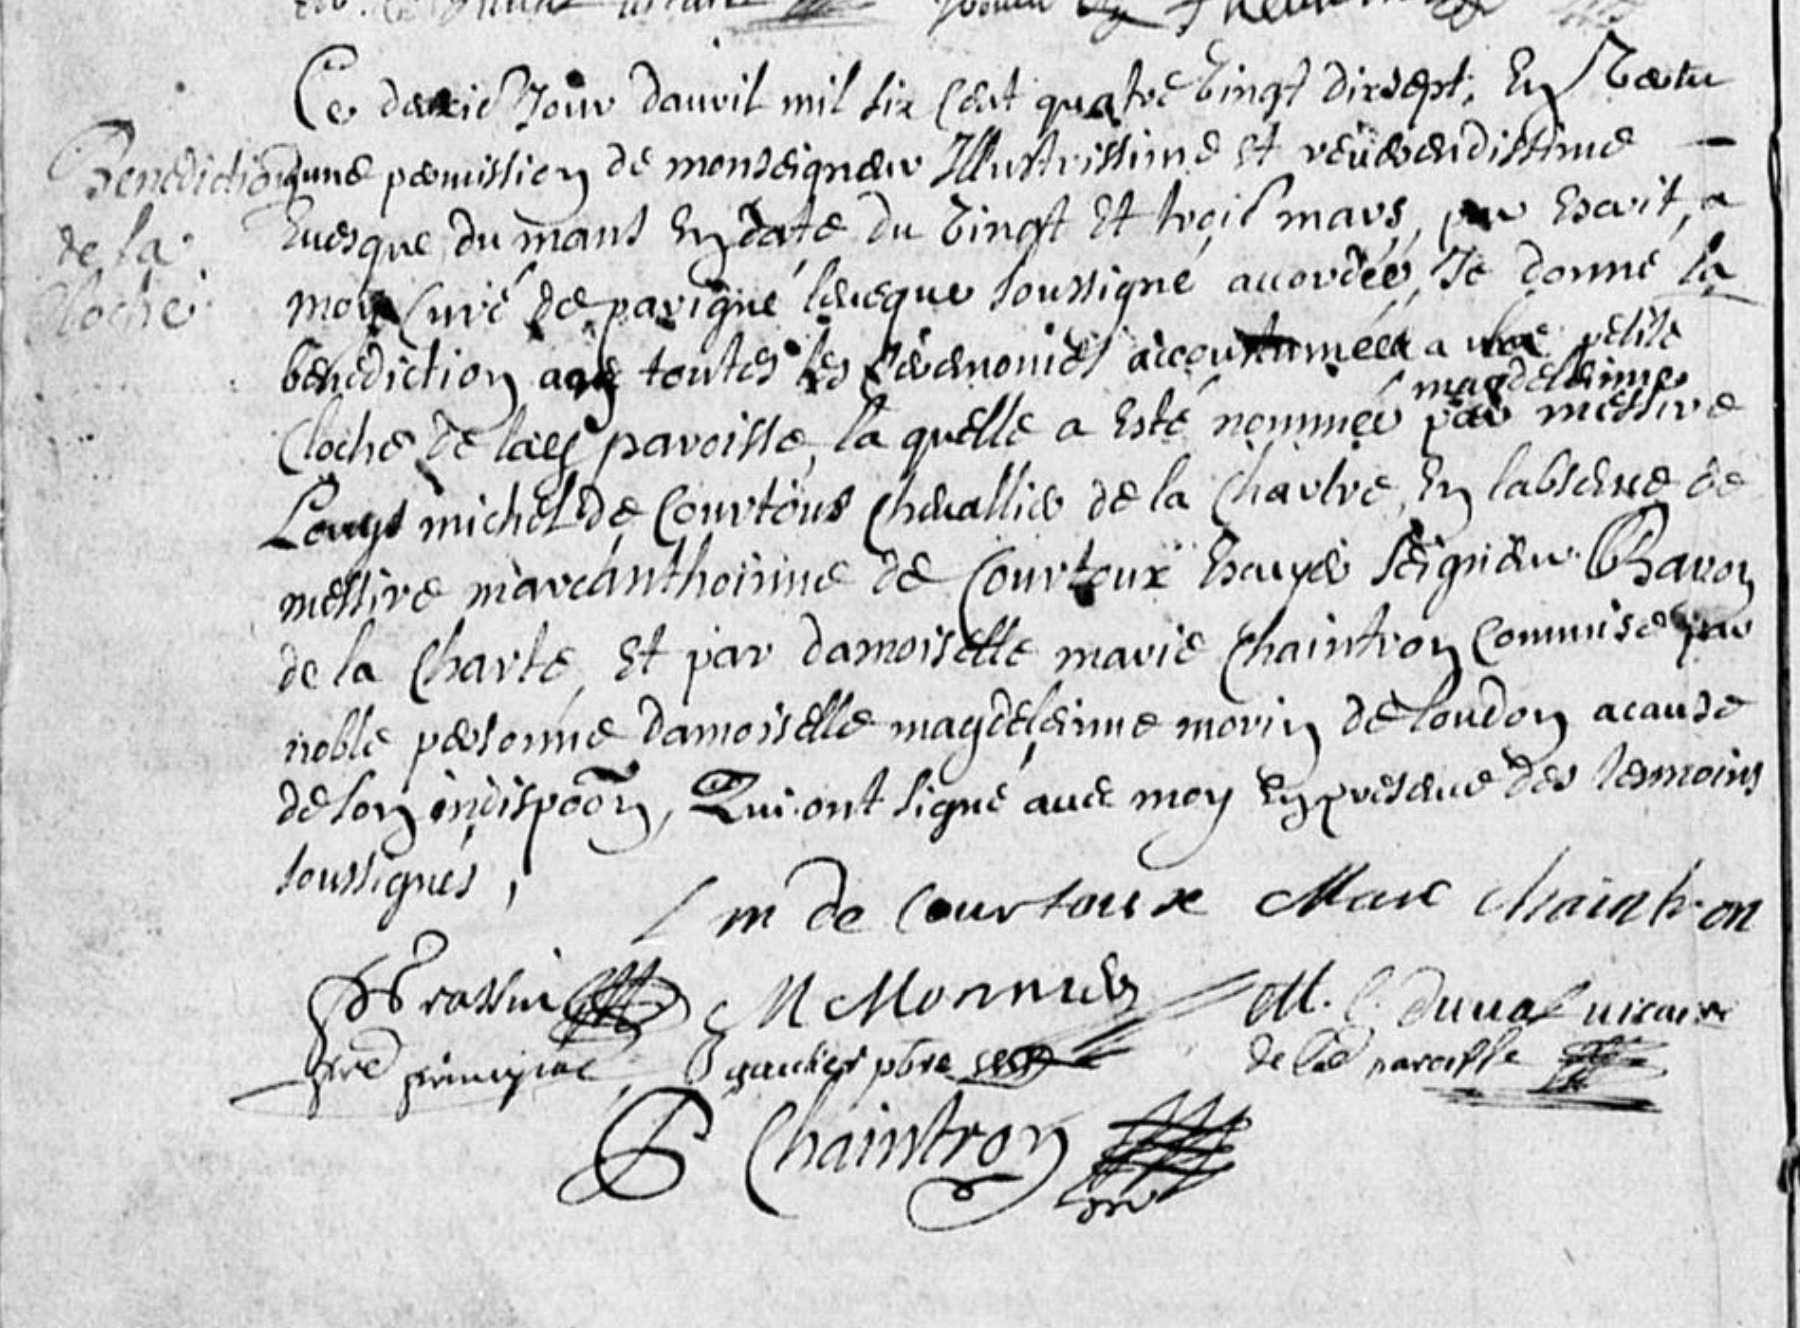 Benediction
de la
Cloche
Ce dexie Jour dauril mil six cent quatre vingt dixsept, En vertu
dune permission de monseigneur Illustrissime et reuerendissime
Euesque du mans En date du vingt et trois mars, par Escrit, a
moy Curé de parigné leueque soussigné accordée, Je donné la
benediction auec toutes les Ceremonies accoustumées a une petite
magdeleinne
Cloche de lad paroisse, la quelle a esté nommée par messire
Louys michel de Courtous cheuallier de la Chartre, En labsence de
messire marcanthoinne de Courtoux Escuyer Seigneur Baron
de la Charte, et par damoiselle marie Chaintron Commise par
noble personne damoiselle magdeleinne morin de loudon acause
de son indispoon, Qui ont signé auec moy En presence des tesmoins
soussignés,
L m de Courtoux Marie chaintron
M Monnier M. duual uicaire
gaultier pbre de lad paroisse
Chaintron